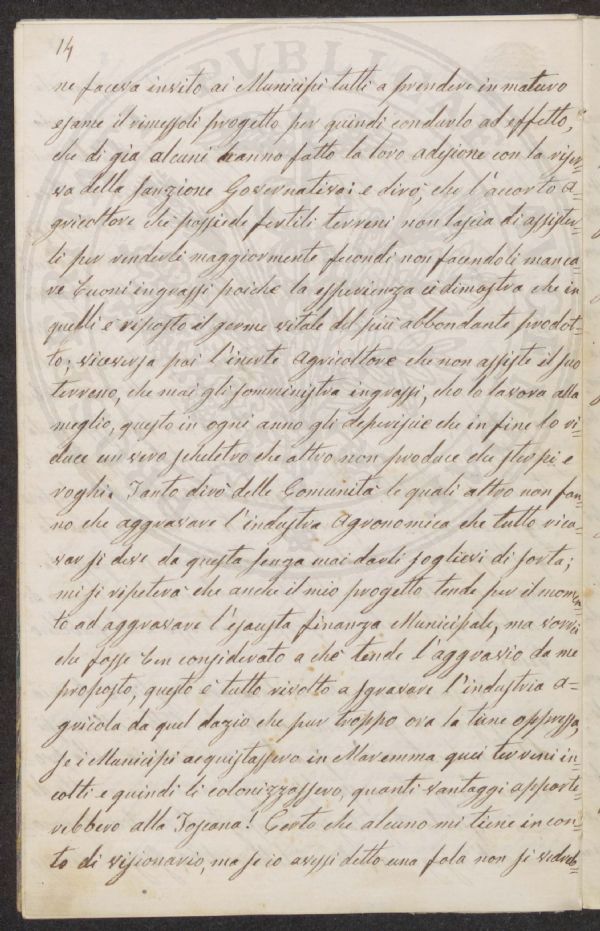 14
ne faceva invito ai Municipi tutti a prendere in maturo
esame il rimessoli progetto per quindi condurlo ad effetto,
che di già alcuni hanno fatto la loro adesione con la riser=
va della sanzione Governativa: e dirò, che l'accorto a=
gricoltore che possiede fertili terreni non lascia di assister=
li per renderli maggiormente fecondi non facendoli manca
re buoni ingrassi poiché la esperienza ci dimostra che in
quelli è risposto il germe vitale del più abbondante prodot=
to; viceversa poi l'inerte agricoltore che non assiste il suo
terreno, che mai gli somministra ingrassi, che lo lavora alla
meglio, questo in ogni anno gli deperisce che in fine lo ri=
duce un vero scheletro che altro non produce che sterpi, e
roghi. Tanto dirò delle Comunità le quali altro non fan=
no che aggravare l'industra agronomica che tutto rica=
var si deve da questa senza mai darli soglievi di sorta;
mi si ripeterà che anche il mio progetto tende per il momen
to ad aggravare l'esausta finanza Municipale, ma vorrei
che fosse ben considerato a che tende l'aggravio da me
proposto, questo è tutto rivolto a sgravare l'industria a=
gricola da quel dazio che pur troppo ora la tiene oppressa,
se i Municipi acquistassero in Maremma quei terreni in=
colti e quindi li colonizzassero, quanti vantaggi apporte=
rebbero alla Toscana! Certo che alcuno mi tiene in con=
to di visionario, ma se io avessi detto una fola non si vedreb=